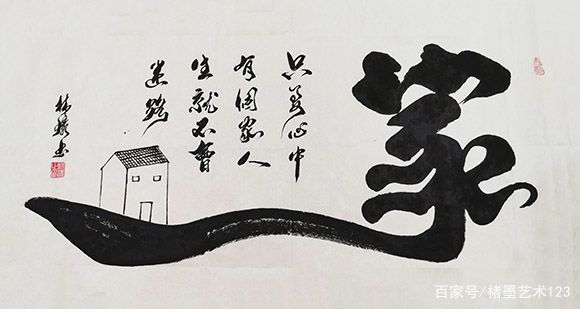 家
只要心中
有個家人
生就不會
迷路
百家号/楮墨艺术123